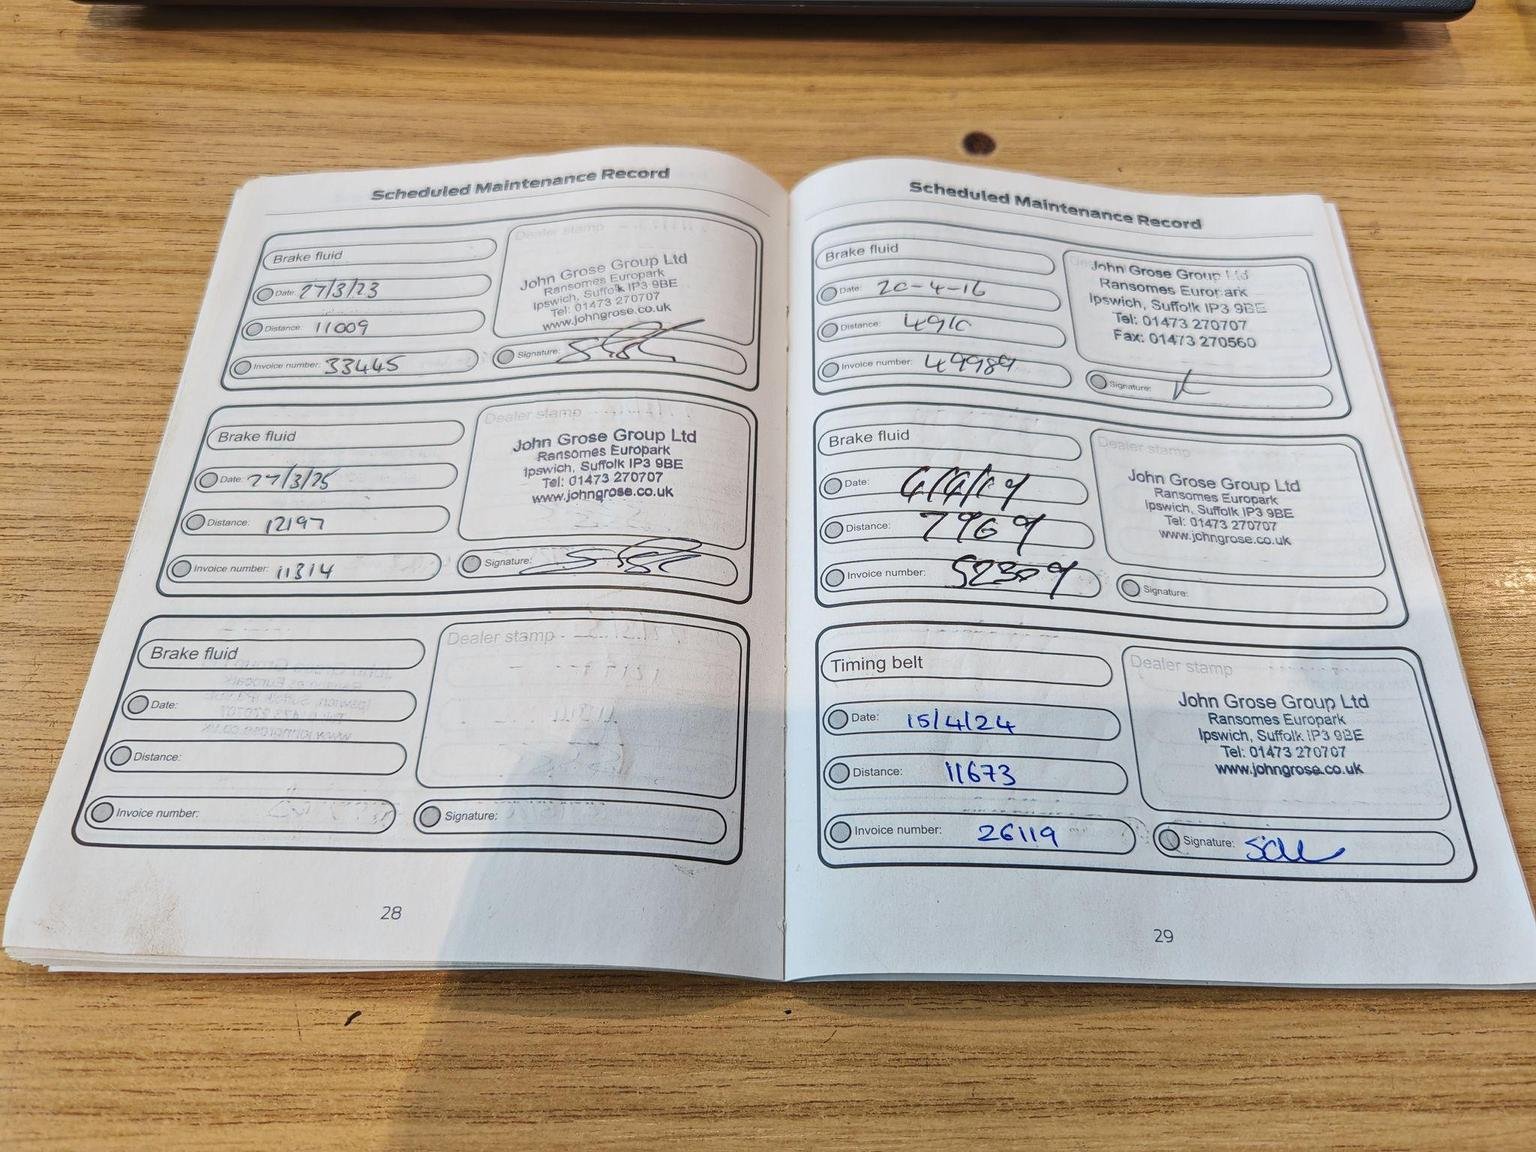 Scheduled Maintenance Record
Brake fluid
Date: 27/3/23
Distance: 11009
Invoice number: 33445
Dealer stamp
John Grose Group Ltd
Ransomes Europark
Ipswich, Suffolk IP3 9BE
Tel: 01473 270707
www.johngrose.co.uk
Signature:
Brake fluid
Date: 27/3/25
Distance: 12197
Invoice number: 11314
Dealer stamp
John Grose Group Ltd
Ransomes Europark
Ipswich, Suffolk IP3 9BE
Tel: 01473 270707
www.johngrose.co.uk
Signature:
Brake fluid
Date:
Distance:
Invoice number:
Dealer stamp
Signature:
28
Scheduled Maintenance Record
Brake fluid
Date: 20-4-16
Distance:
Invoice number: 49989
John Grose Group Ltd
Ransomes Europark
Ipswich, Suffolk IP3 9BE
Tel: 01473 270707
Fax: 01473 270560
Signature:
Brake fluid
Date:
Distance: 7969
Invoice number: 52309
Dealer stamp
John Grose Group Ltd
Ransomes Europark
Ipswich, Suffolk IP3 9BE
Tel: 01473 270707
www.johngrose.co.uk
Signature:
Timing belt
Date: 15/4/24
Distance: 11673
Invoice number: 26119
Dealer stamp
John Grose Group Ltd
Ransomes Europark
Ipswich, Suffolk IP3 9BE
Tel: 01473 270707
www.johngrose.co.uk
Signature:
29